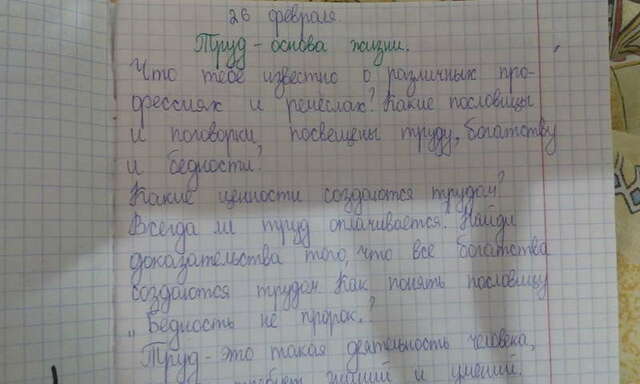 26 февраля.
Труд - основа жизни.
Что тебе известно о различных про-
фессиях и ремёслах? Какие пословицы
и поговорки, посвещены труду, богатству
и бедности?
Какие ценности создаются трудом?
Всегда ли труд оплачивается. Найди
доказательства того, что все богатства
создаются трудом. Как понять пословицу
„Бедность не пророк.?
Труд - это такая деятельность человека,
требует знаний и умений.